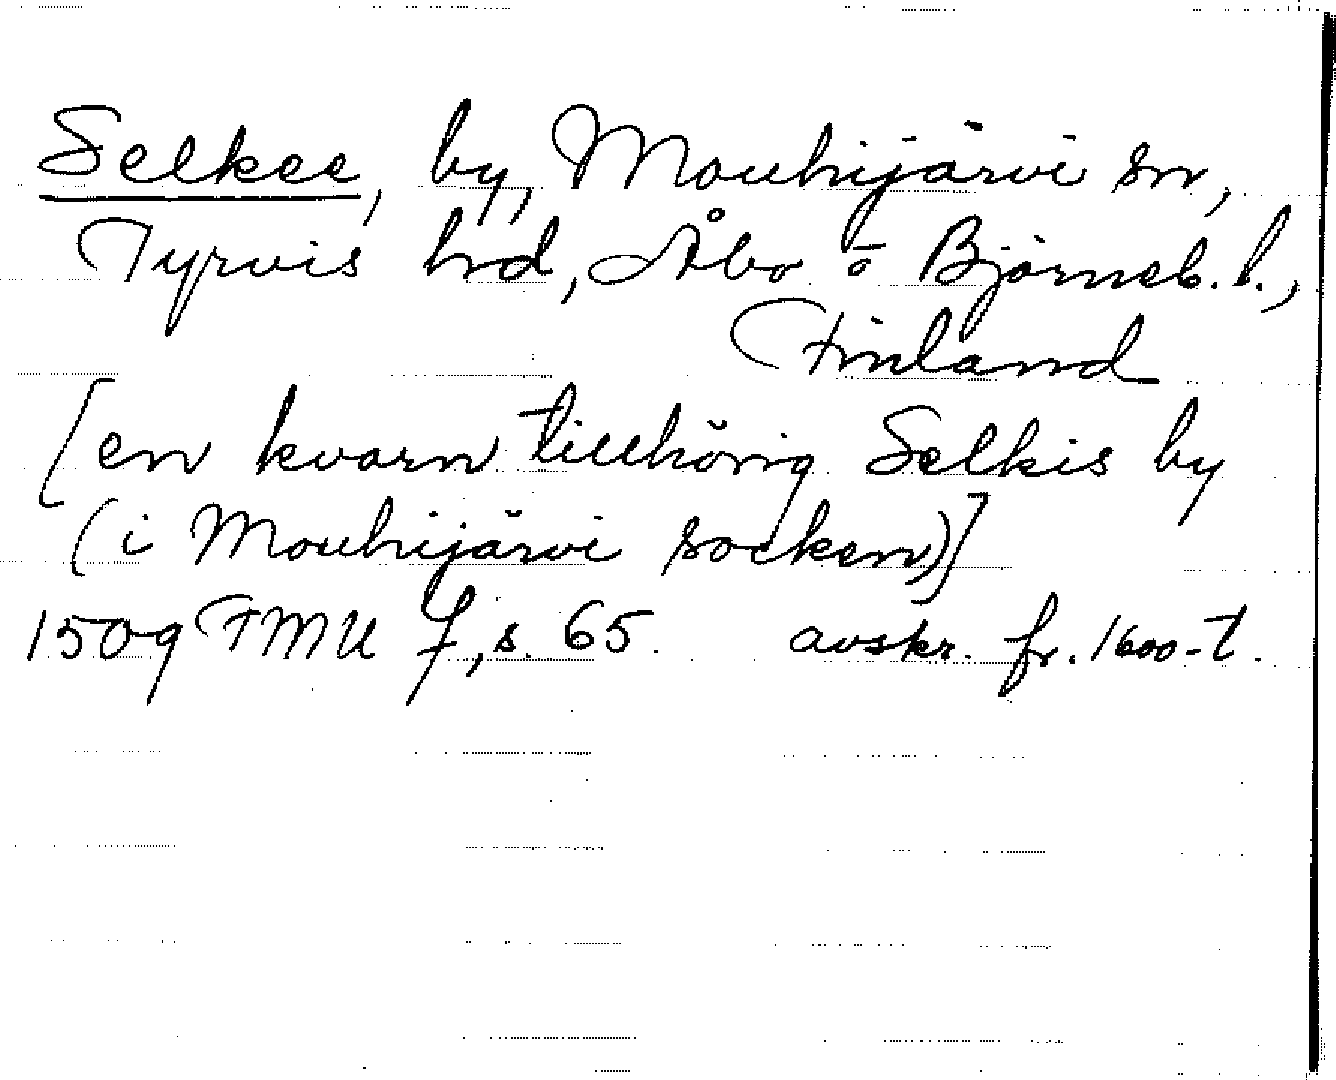 Selkee, by, Mouhijärvi sn,
Tyrvis hrd, Åbo o Björneb. l.,
Finland
[en kvarn tillhörig Selkis by
(i Mouhijärvi socken)]
1509 FMU 7, s. 65. avskr. fr. 1600-t.